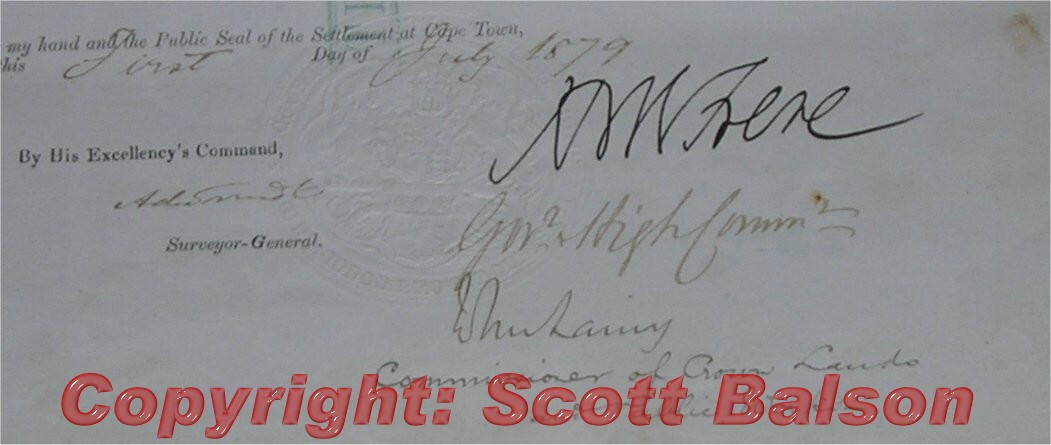 my hand and the Public Seal of the Settlement at Cape Town,
this First Day of July 1879
HBE Frere
By His Excellency's Command,
Surveyor-General.
Govr. & High Commr.
John Laing
Commissioner of Crown Lands
& Public Works
Copyright: Scott Balson